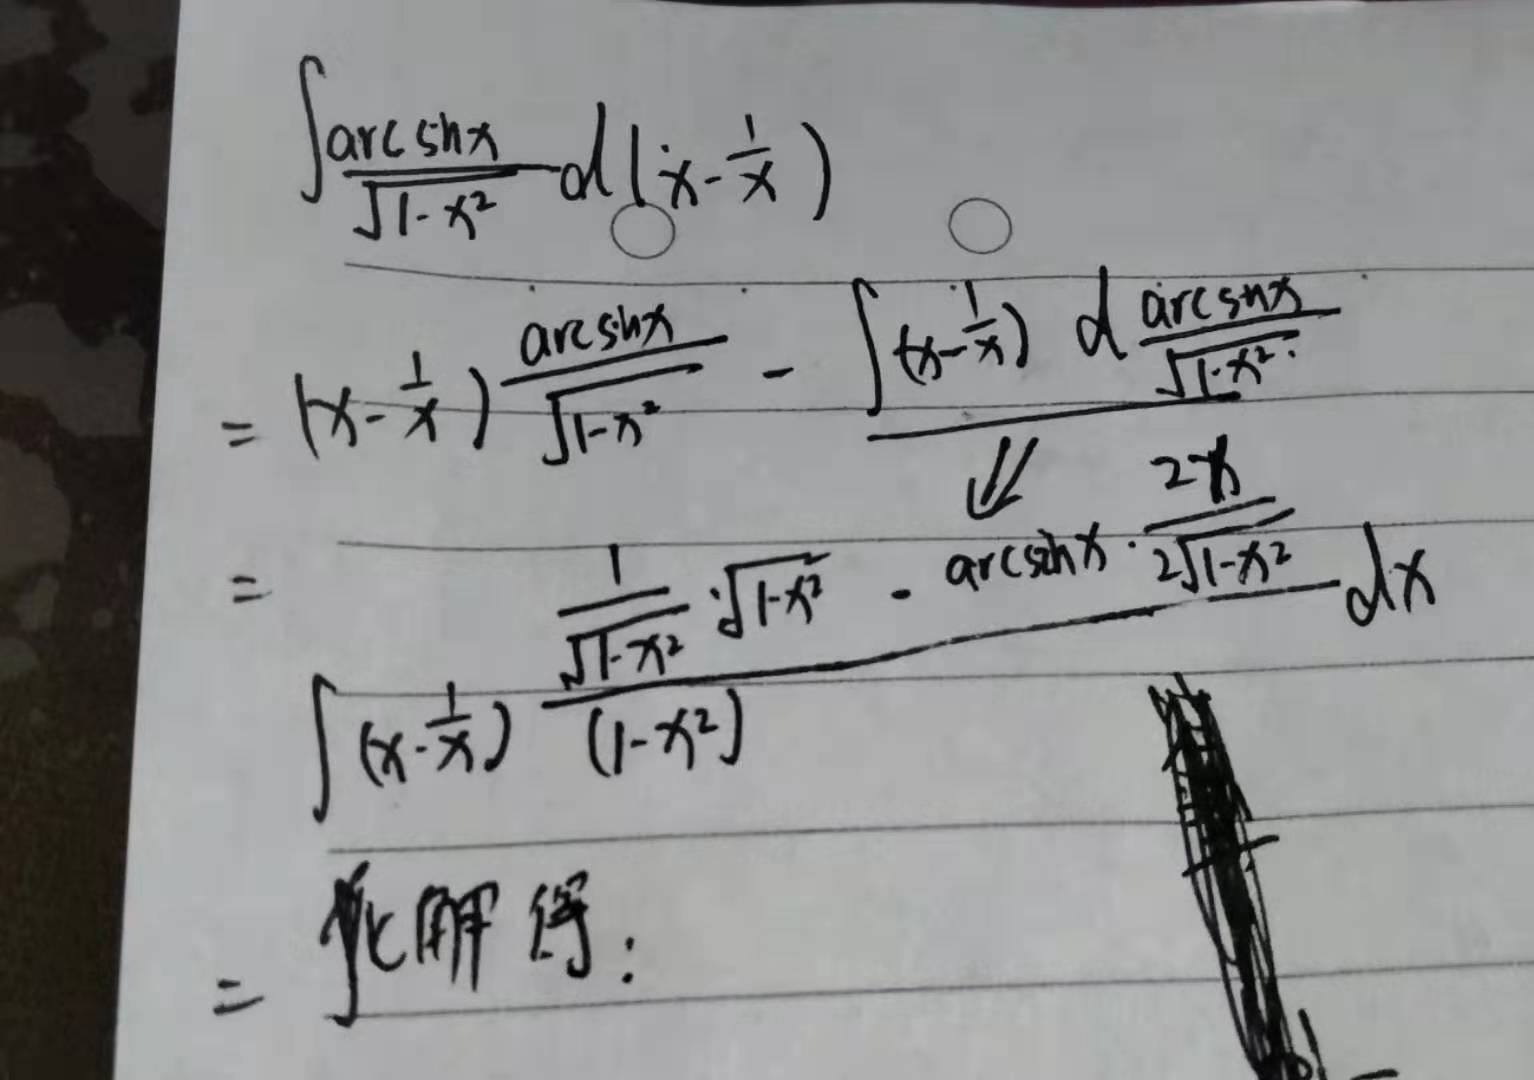 ∫ arcsinx / √(1-x²) d(x - 1/x)
= (x - 1/x) arcsinx / √(1-x²) - ∫ (x - 1/x) d arcsinx / √(1-x²)
⇓
= ∫ (x - 1/x) (1/√(1-x²) · √(1-x²) - arcsinx · 2x / 2√(1-x²)) / (1-x²) dx
= 化解得: